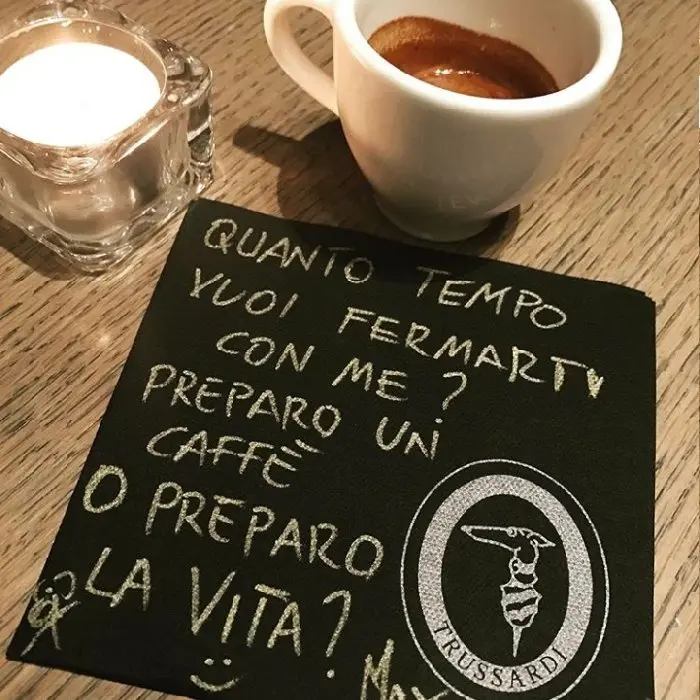 QUANTO TEMPO
VUOI FERMARTI
CON ME?
PREPARO UN
CAFFÈ
O PREPARO
LA VITA?
TRUSSARDI